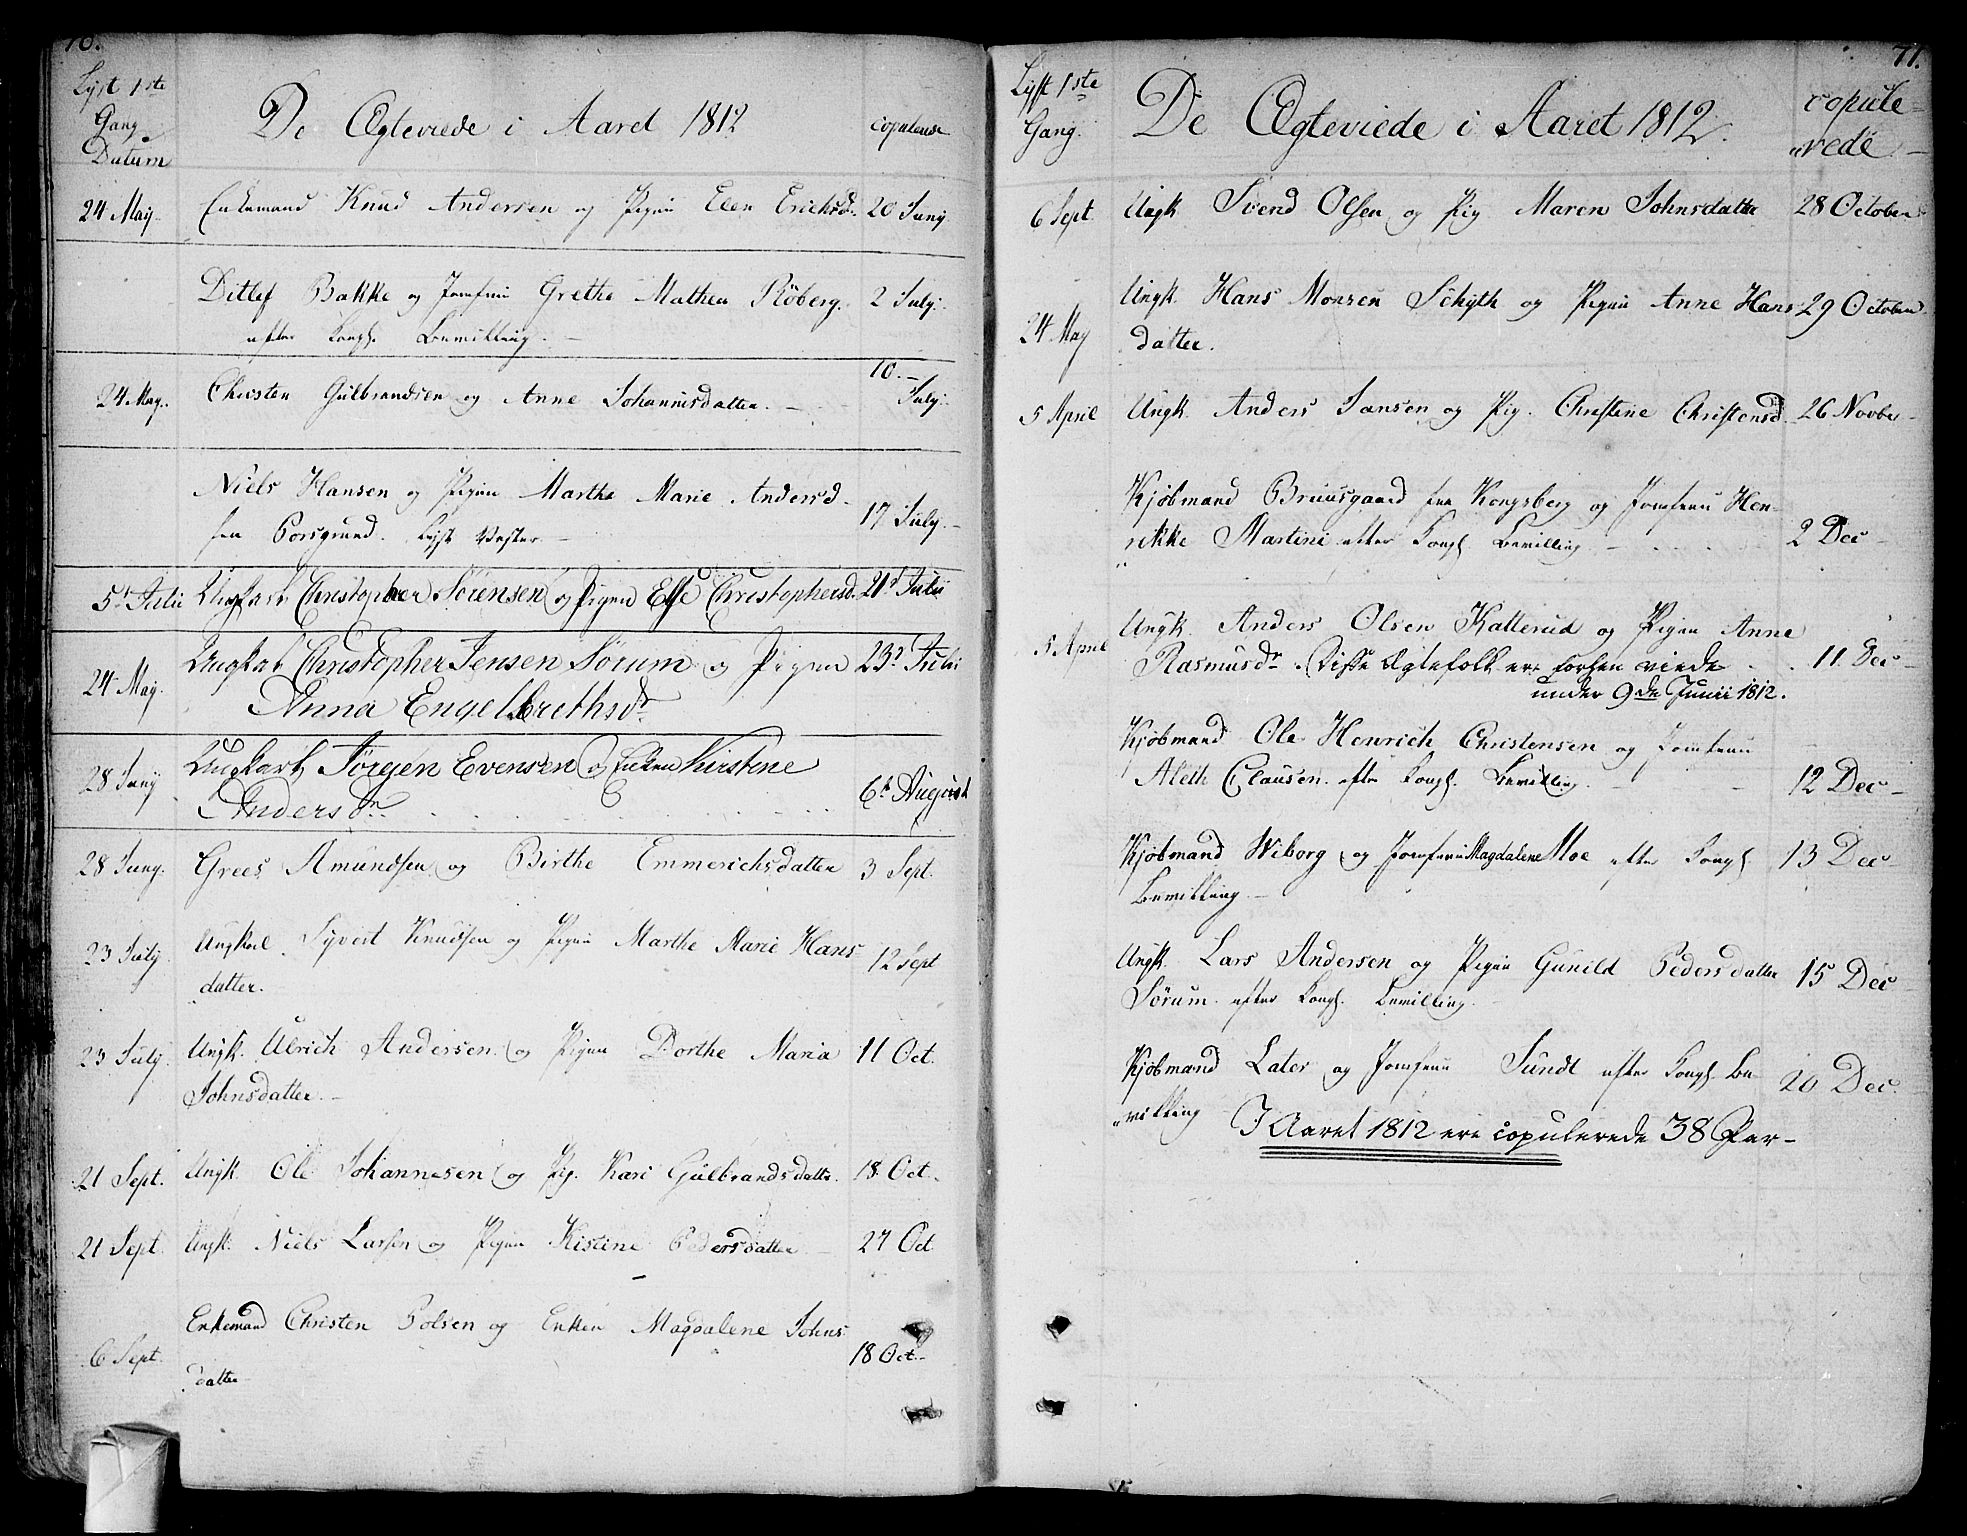 70.
Lyst 1ste
Gang
Datum
De Ægteviede i Aaret 1812
copulerede
24 May. Enkemand Knud Andersen og Pigen Elen Ericksdr. 20 Juny
Ditlef Bakke og Jomfrue Grethe Mathea Röberg. 2 July.
efter Kongl. Bevilling. -
24 May. Christen Gulbrandsen og Anne Johannisdatter. - 10. - July.
Niels Hansen og Pigen Marthe Marie Andersd.
fra Porsgrund. Lyst Vester - 17 July. -
5t Julii Ungkarl Christopher Sörensen og Pigen Else Christophersd. 21d Julii
Ungkarl Christopher Jensen Sörum og Pigen 23d Julii
24 May. Anna Engelbrethsdr.
Ungkarl Jörgen Evensen og Enken Kirstine
28 Juny Andersdr. 6t August
28 Juny. Grees Amundsen og Birthe Emmerichsdatter 3 Sept.
23 July Ungkarl Syvert Knudsen og Pigen Marthe Marie Hans
datter. 12 Sept
23 July. Ungk. Ulrich Andersen og Pigen Dorthe Maria 11 Oct.
Johnsdatter. -
21 Sept. Ungk. Ole Johannesen og Pig. Kari Gulbrandsdatter. 18 Oct.
21 Sept. Ungk. Niels Larsen og Pigen Kistine Pedersdatter 27 Oct
Enkemand Christen Polsen og Enken Magdalene Johns
6 Sept. datter 18 Oct.
71.
Lyst 1ste
Gang.
De Ægteviede i Aaret 1812.
copule=
"rede. -
6 Sept. Ungk. Svend Olsen og Pig Maren Johnsdatter 28 October
Ungk. Hans Monsen Schyth og Pigen Anne Hans 29 October
24 May datter.
5 April Ungk. Anders Jansen og Pig. Christine Christensd. 26 Novbr
Kjöbmand Bruusgaard fra Kongsberg og Jomfrue Hen-
rikke Martini efter Kongl. Bevilling - 2 Dec -
5 April Ungk. Anders Olsen Katterud og Pigen Anne
Rasmusdr. Disse Ægtefolk ere forhen viede 11 Dec -
under 9de Junii 1812.
Kjöbmand Ole Henrich Christensen og Jomfrue
Aleth Clausen efter Kongl. Bevilling. - 12 Dec -
Kjöbmand Wiborg og Jomfrue Magdalene Moe efter Kongl. 13 Dec -
Bevilling -
Ungk. Lars Andersen og Pigen Gunild Pedersdatter 15 Dec -
Sörum efter Kongl. Bevilling. -
Kjöbmand Later og Jomfrue Sundt efter Kongl. Be 20 Dec.
"villing
I Aaret 1812 ere copulerede 38 Par -